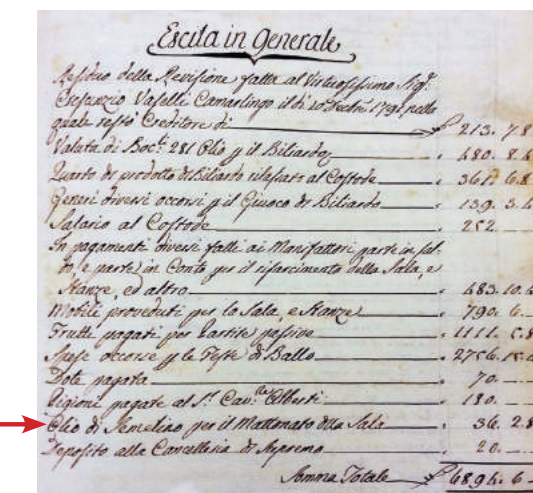 Escita in Generale
Residuo della Revisione fatta al Virtuosissimo Sigr.
Vaselli Camarlingo il di 10 1791 nella
quale restò Creditore di 213. 7. 8
Valuta di Bocti. 281 Olio p il Biliardo 480. 8. 4
Quarto di prodotto di Biliardo rilasciato al Costode 361. 6. 8
Generi diversi occorsi p il Giuoco di Biliardo 139. 3. 4
Salario al Costode 252
In pagamenti diversi fatti ai Manifattori parte in sal-
do, e parte in Conto per il rifarcimento della Sala, e
Stanze, ed altro 483. 10. 4
Mobili proveduti per la Sala, e Stanze 790. 6. —
Frutti pagati per Partite passive 1111. 5. 8
Spese occorse p le Feste di Ballo 2756. 15. 4
Dote pagata 70. — —
Pigioni pagate al Sr. Cavre. Alberti 180. — —
Olio di Semelino per il Mattonato della Sala 36. 2. 8
Deposito alla Cancelleria di 20. — —
Somma Totale 6894. 6 —